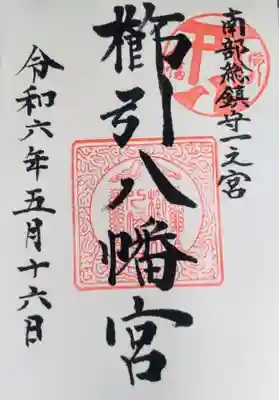 南部総鎮守一之宮
櫛引八幡宮
令和六年五月十六日